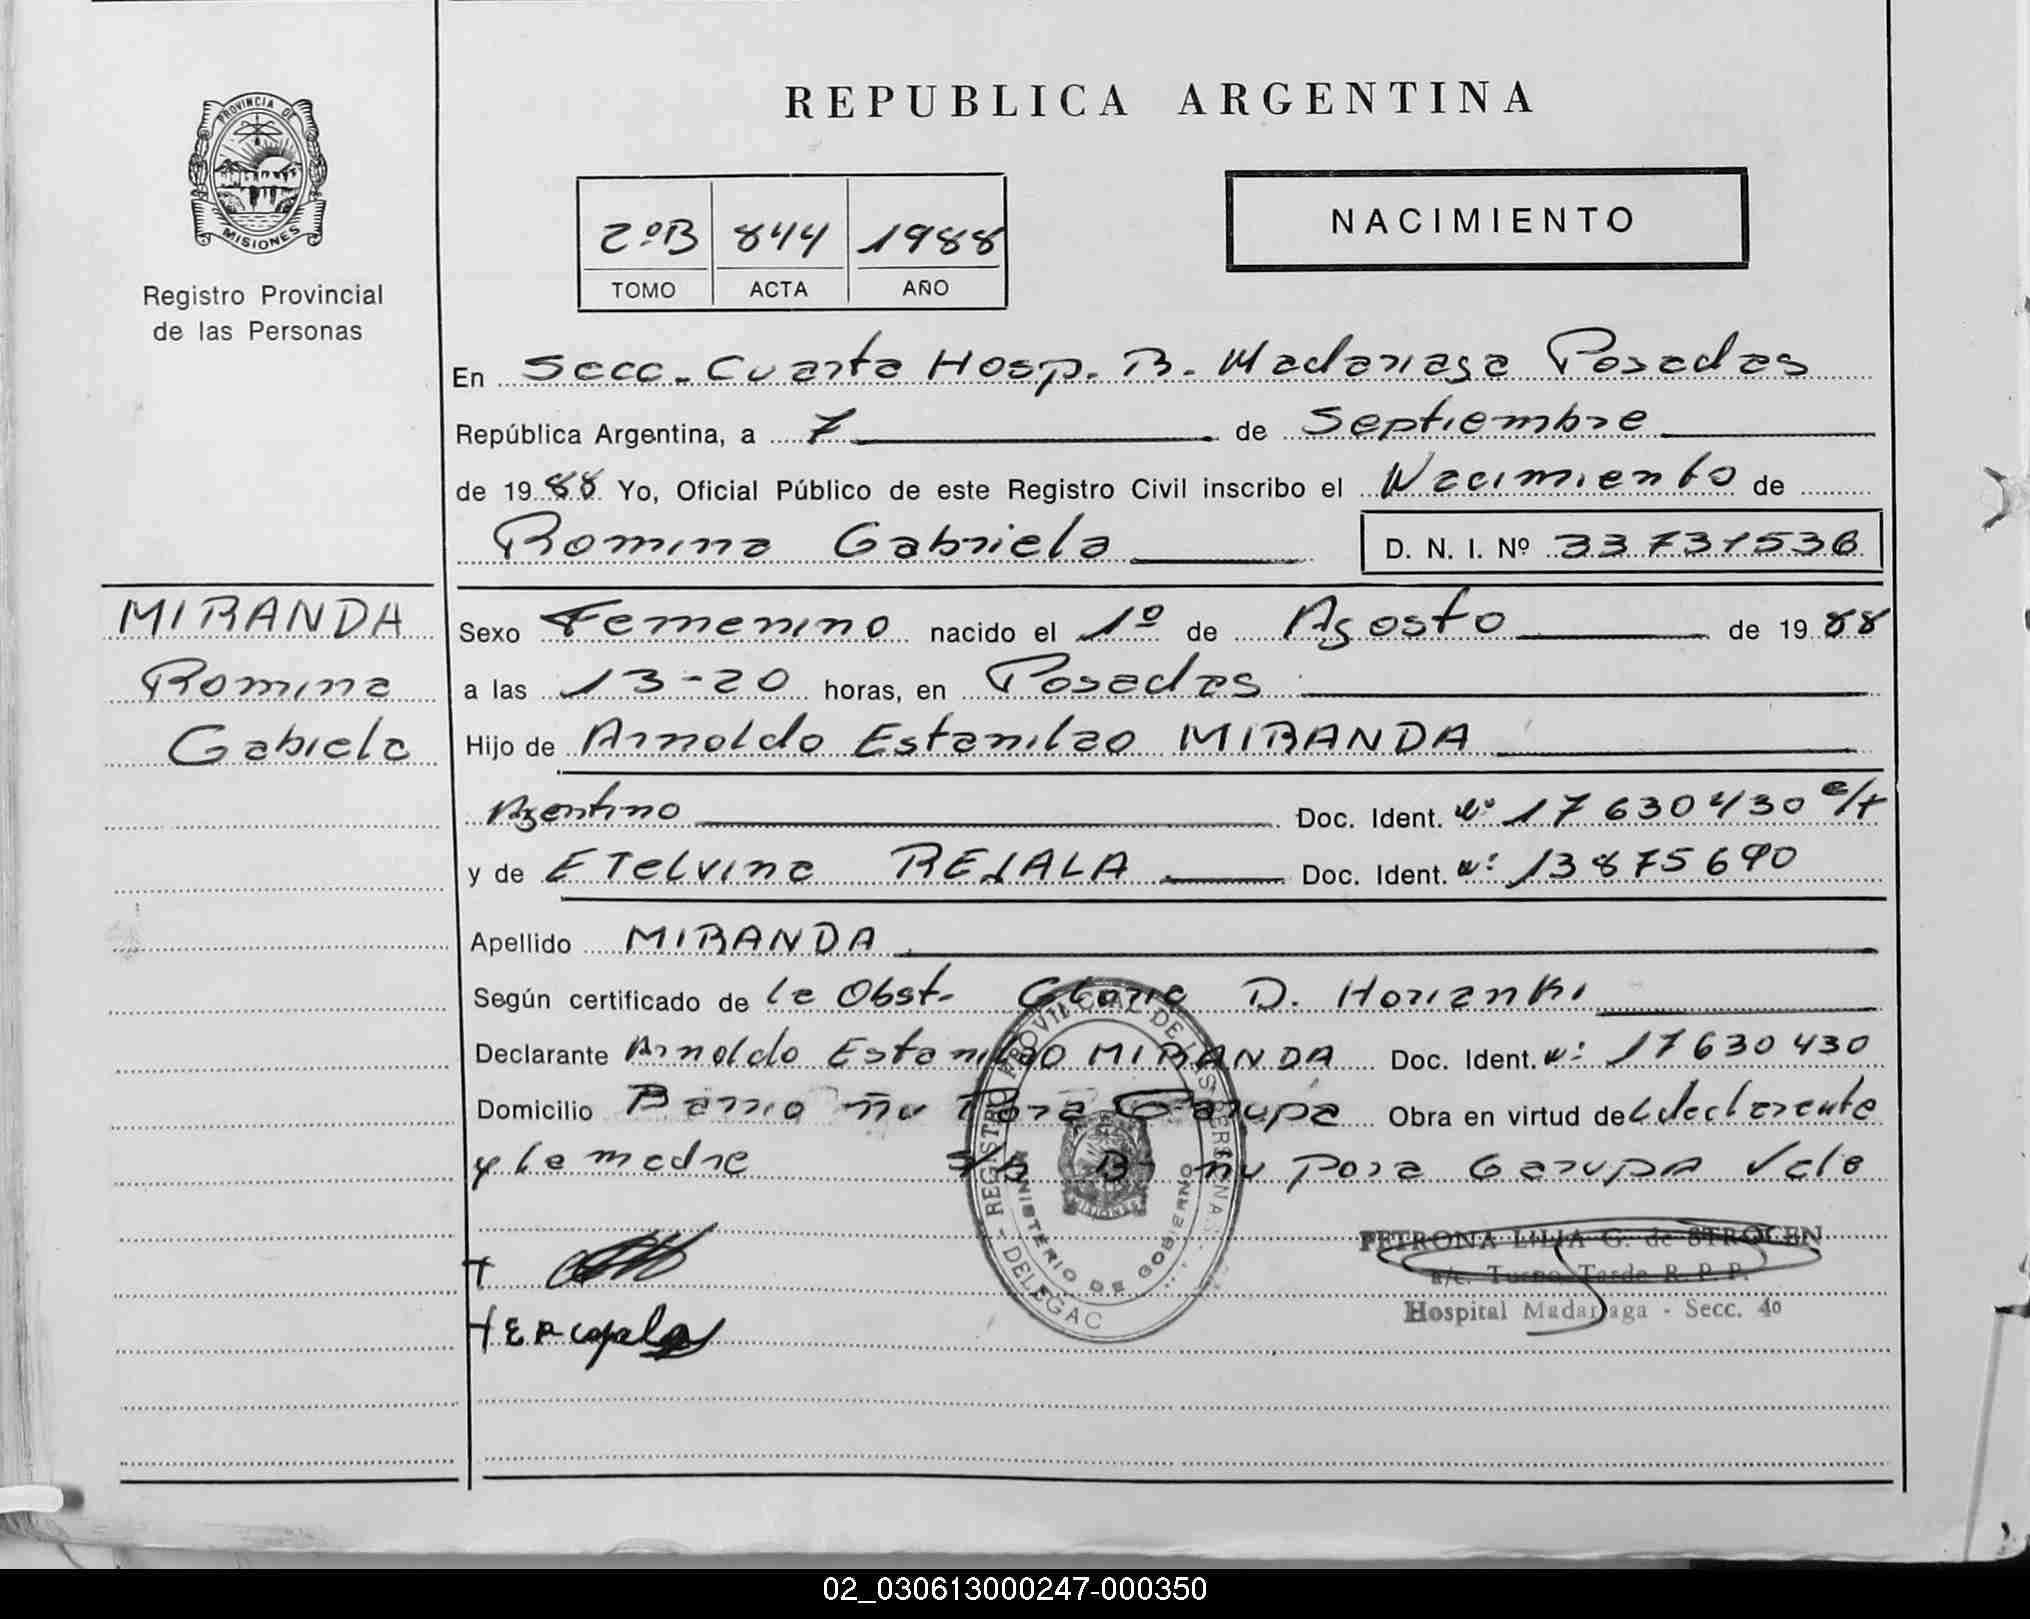 REPUBLICA ARGENTINA
PROVINCIA DE
MISIONES
Registro Provincial
de las Personas
2ºB 844 1988
TOMO ACTA AÑO
NACIMIENTO
En Secc. Cuarta Hosp. R. Madariaga Posadas
República Argentina, a 7 de Septiembre
de 1988 Yo, Oficial Público de este Registro Civil inscribo el Nacimiento de
Romina Gabriela D. N. I. Nº 33731536
MIRANDA
Romina
Gabiela
Sexo Femenino nacido el 1º de Agosto de 1988
a las 13-20 horas, en Posadas
Hijo de Arnoldo Estanilao MIRANDA
Argentino Doc. Ident. Nº 17630430
y de ETelvina REJALA Doc. Ident. Nº 13875690
Apellido MIRANDA
Según certificado de la Obst. Gloria D. Horianki
Declarante Arnoldo Estanilao MIRANDA Doc. Ident. Nº 17630430
Domicilio Barrio ñu Pora Garupa Obra en virtud del declarente
y la madre B- ñu pora Garupa Vale
REGISTRO PROVINCIAL DE LAS PERSONAS - DELEGAC
MINISTERIO DE GOBIERNO
PETRONA LILIA G. de STROCEN
a/c. Turno Tarde R. P. P.
Hospital Madariaga - Secc. 4º
02_030613000247-000350